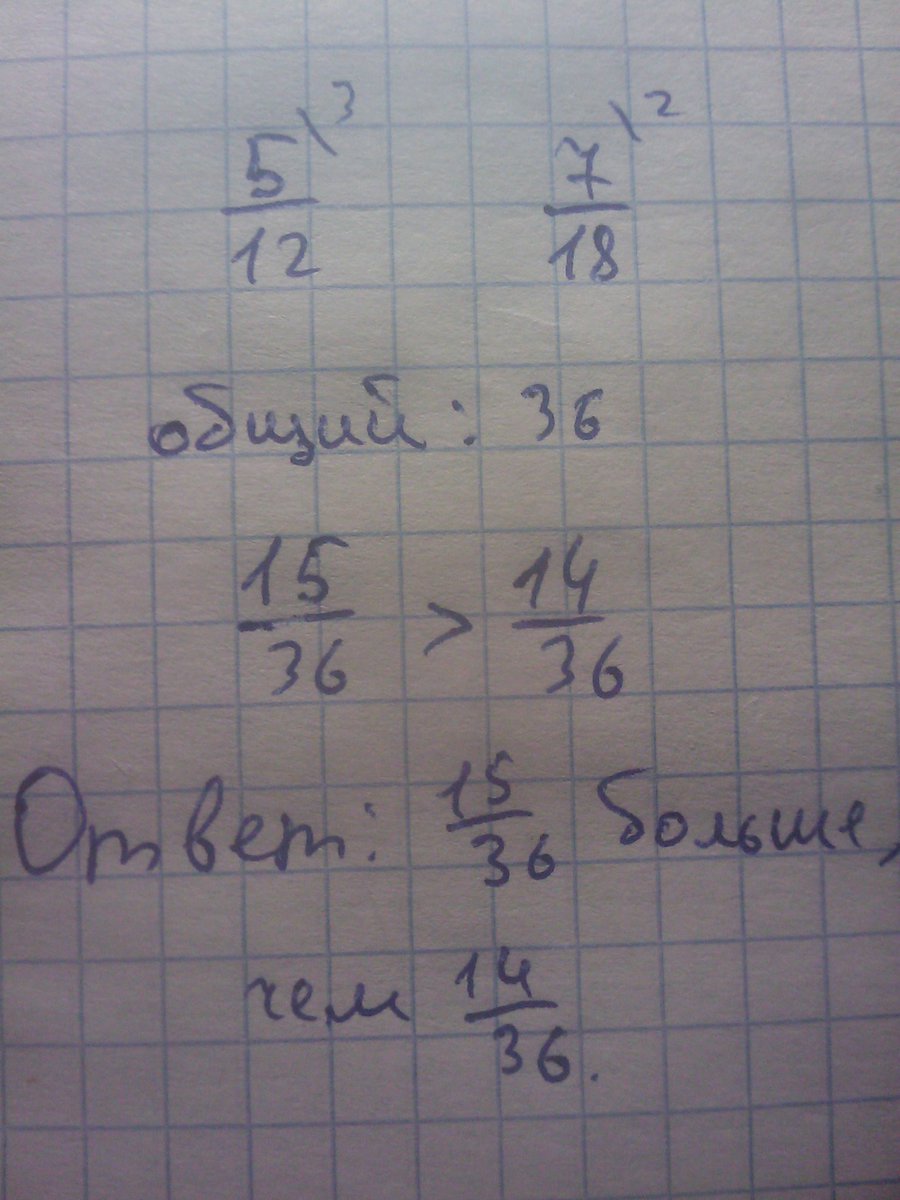 5/12 \3 7/18 \2
общий: 36
15/36 > 14/36
Ответ: 15/36 больше,
чем 14/36.